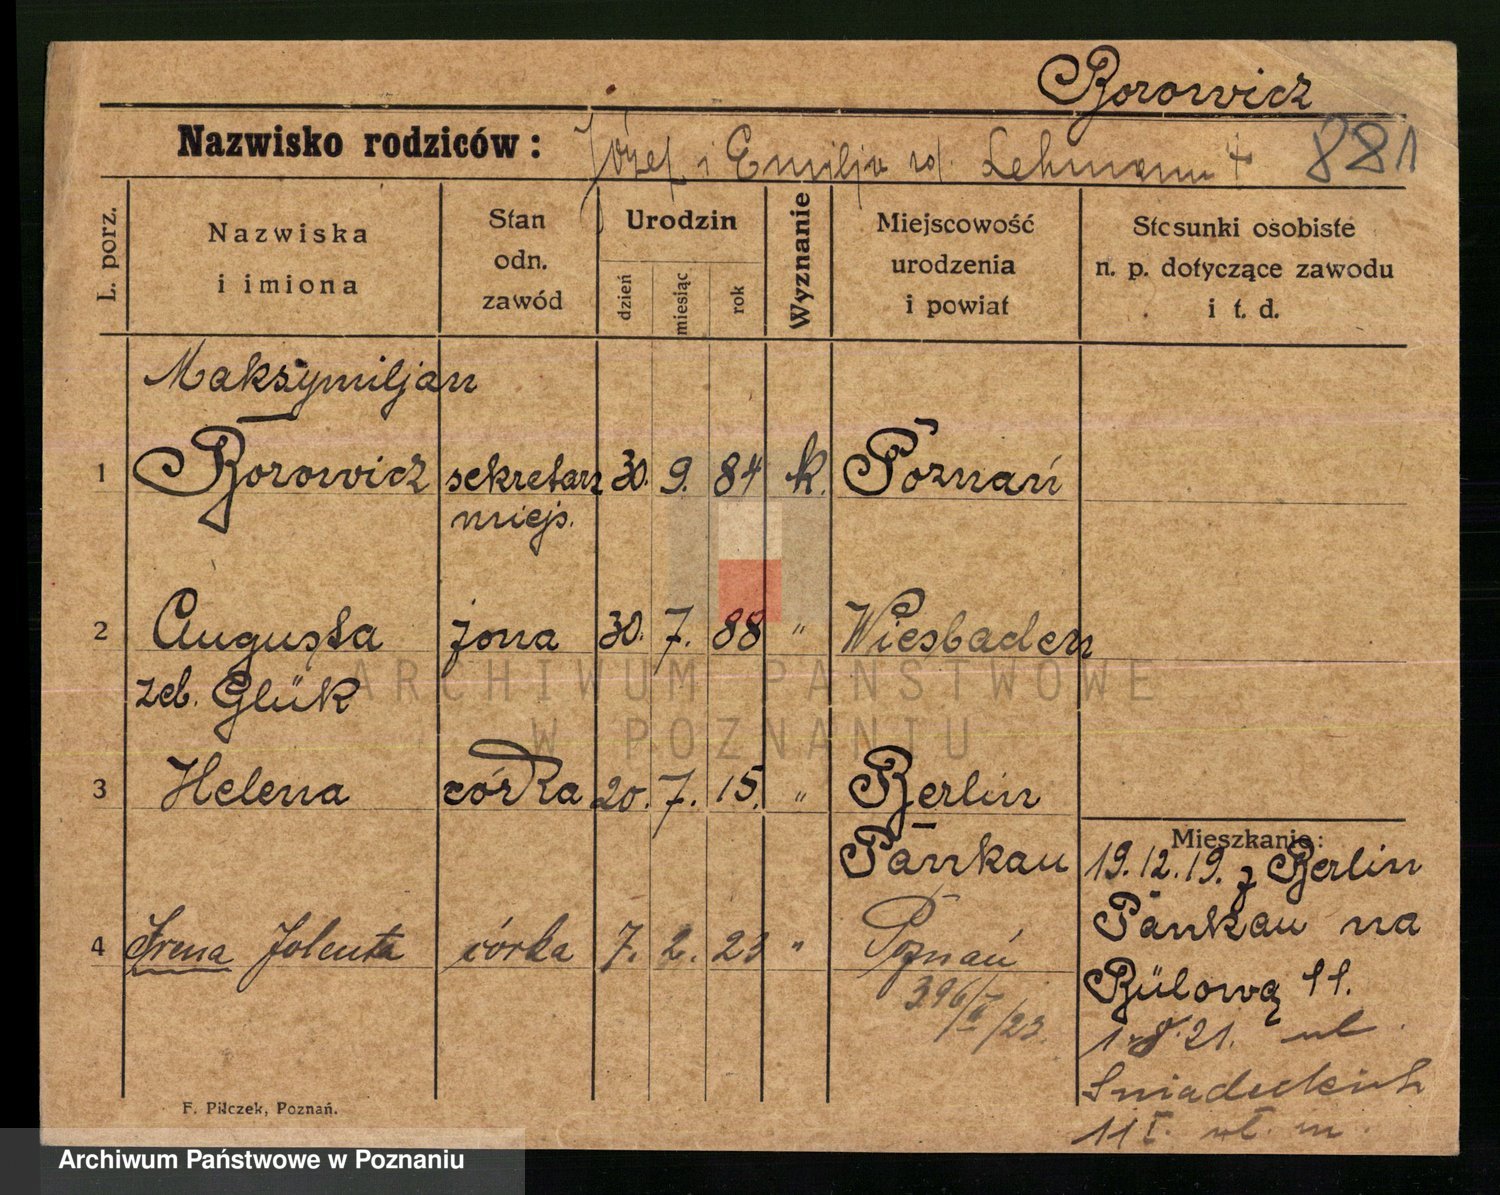 Borowicz
Nazwisko rodziców: Józef i Emilja rod. Lehmann + 881
L. porz.
Nazwiska i imiona
Stan odn. zawód
Urodzin
dzień
miesiąc
rok
Wyznanie
Miejscowość urodzenia i powiat
Stosunki osobiste n. p. dotyczące zawodu i t. d.
Maksymiljan
1 Borowicz sekretarz 30. 9. 84 k. Poznań
miejs.
2 Augusta żona 30. 7. 88 " Wiesbaden
zeb. Glük
ARCHIWUM PAŃSTWOWE
W POZNANIU
3 Helena córka 20. 7. 15. " Berlin
Pankau
Mieszkanie:
19.12.19. z Berlin
Pankau na
4 Irena Jolenta córka 7. 2. 23 " Poznań
Bülową 11.
396/II/23.
1.8.21. ul.
Śniadeckich
11 I. wł. m.
F. Pilczek, Poznań.
Archiwum Państwowe w Poznaniu